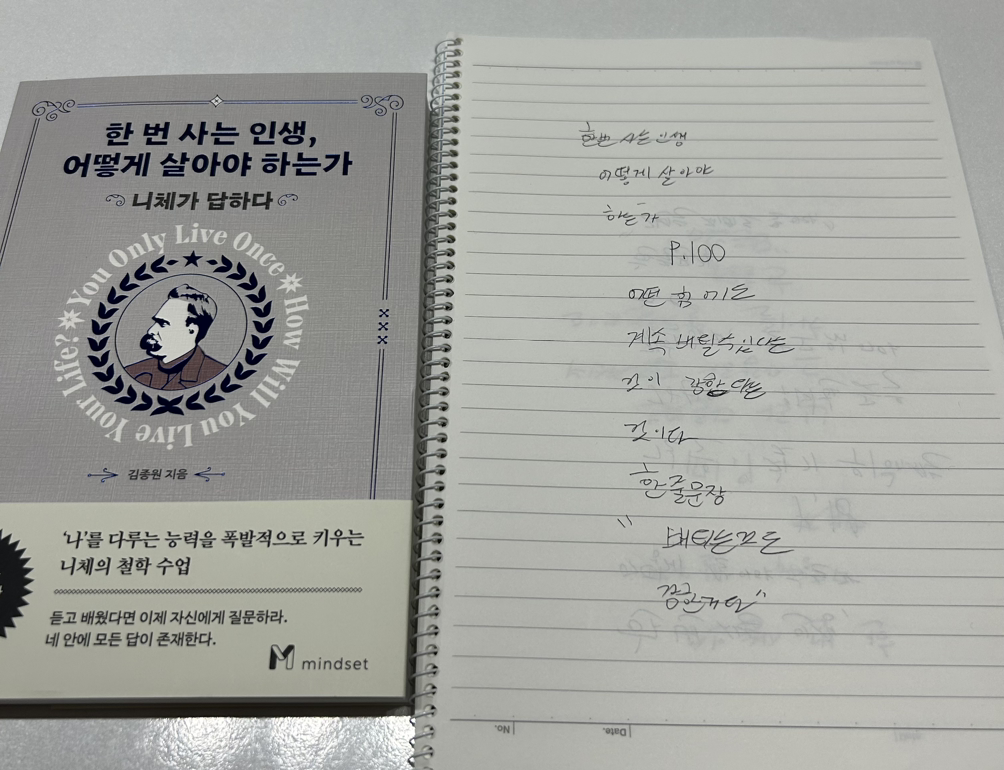 한 번 사는 인생,
어떻게 살아야 하는가
니체가 답하다
You Only Live Once
How Will You Live Your Life?
김종원 지음
'나'를 다루는 능력을 폭발적으로 키우는
니체의 철학 수업
듣고 배웠다면 이제 자신에게 질문하라.
네 안에 모든 답이 존재한다.
mindset
한번 사는 인생
어떻게 살아야
하는가
P.100
어떤 힘에도
계속 버틸수있다는
것이 강함다는
것이다
한줄문장
"버티는
No.
Date.